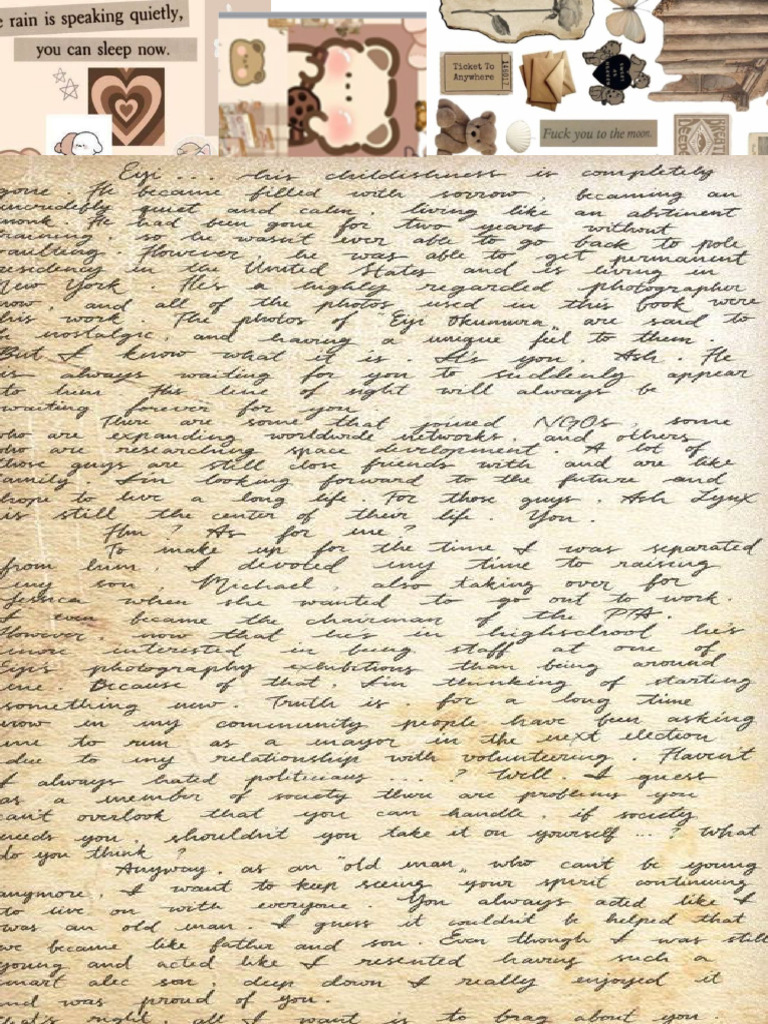 e rain is speaking quietly,
you can sleep now.
Ticket To
Anywhere
Fuck you to the moon.
Eiji ... his childishness is completely
gone. He became filled with sorrow, becaming an
incredebly quiet and calm, living like an abstinent
monk. He had been gone for two years without
training, so he wasn't ever able to go back to pole
vaulting. However he was able to get permanent
residency in the United States and is living in
New York. He's a highly regarded photographer
now, and all of the photos used in this book were
his work. The photos of "Eiji Okumura" are said to
be nostalgic, and having a unique feel to them.
But I know what it is. It's you, Ash. He
is always waiting for you to suddenly appear
to him. His line of sight will always be
waiting forever for you.
There are some that joined NGOs, some
who are expanding worldwide networks, and others
who are researching space development. A lot of
those guys are still close friends with and are like
family. I'm looking forward to the future and
hope to live a long life. For those guys, Ash Lynx
is still the center of their life. You.
Hm? As for me?
To make up for the time I was separated
from him, I devoted my time to raising
my son, Michael, also taking over for
Jessica when she wanted to go out to work.
I even became the chairman of the PTA.
However, now that he's in highschool he's
more interested in being staff at one of
Eiji's photography exhibitions than being around
me. Because of that, I'm thinking of starting
something new. Truth is, for a long time
now in my community people have been asking
me to run as a mayor in the next election
due to my relationship with volunteering. Haven't
I always hated politicians .... ? Well, I guess
as a member of society there are problems you
can't overlook that you can handle, if society
needs you, shouldn't you take it on yourself ...? What
do you think?
Anyway, as an "old man" who can't be young
anymore, I want to keep seeing your spirit continuing
to live on with everyone. You always acted like I
was an old man. I guess it couldn't be helped that
we became like father and son. Even though I was still
young and acted like I resented having such a
smart alec son, deep down I really enjoyed it
and was proud of you.
that's right, all I want is to brag about you.